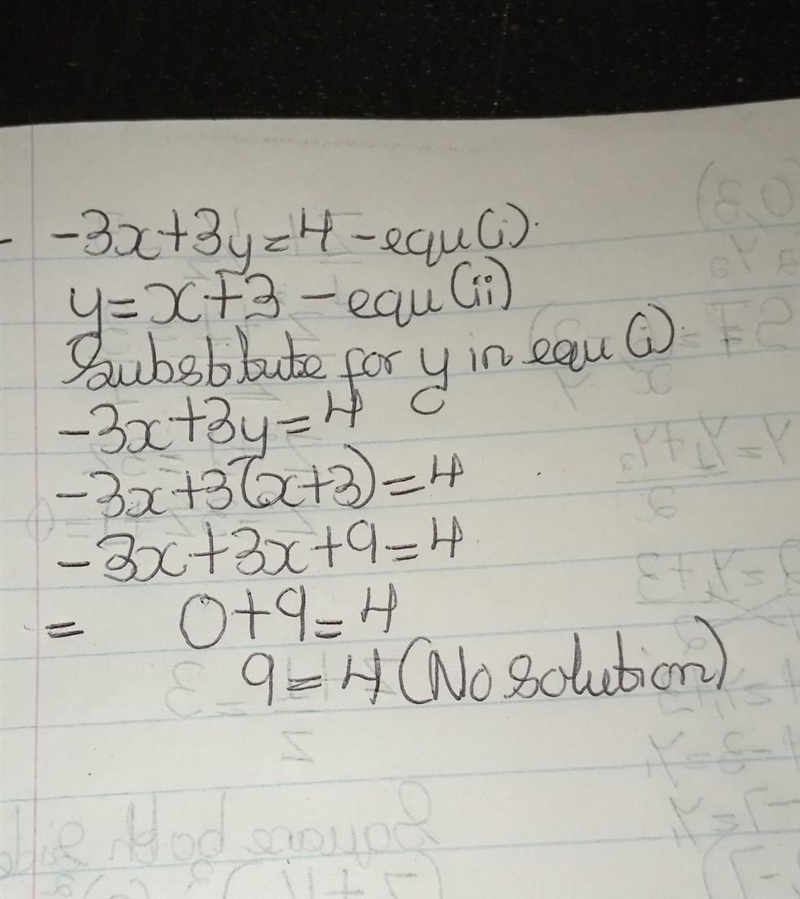 - -3x+3y=4 -equ(i).
y=x+3 -equ(ii)
Substitute for y in equ(i).
-3x+3y=4
-3x+3(x+3)=4
-3x+3x+9=4
= 0+9=4
9=4(No solution)